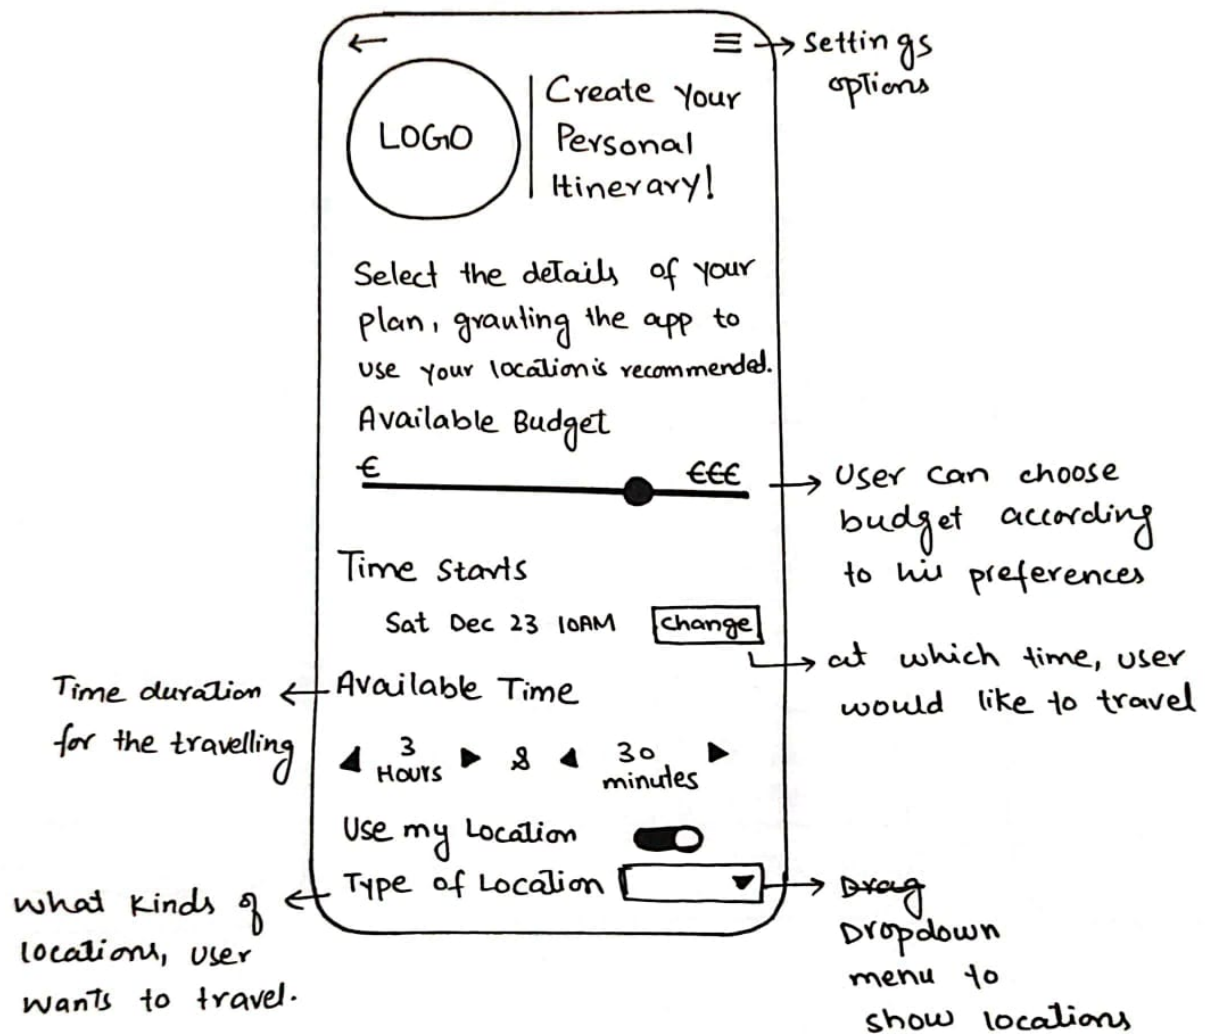 ← ☰ → Settings
options
LOGO
Create Your
Personal
Itinerary!
Select the details of your
plan, granting the app to
use your location is recommended.
Available Budget
€ €€€
→ User can choose
budget according
to his preferences
Time Starts
Sat Dec 23 10AM change
→ at which time, user
would like to travel
Time duration ← Available Time
for the travelling
◀ 3 ▶ & ◀ 30 ▶
Hours minutes
Use my Location
Type of Location ▼
What kinds of ←
locations, user
wants to travel.
→ Drag
Dropdown
menu to
show locations